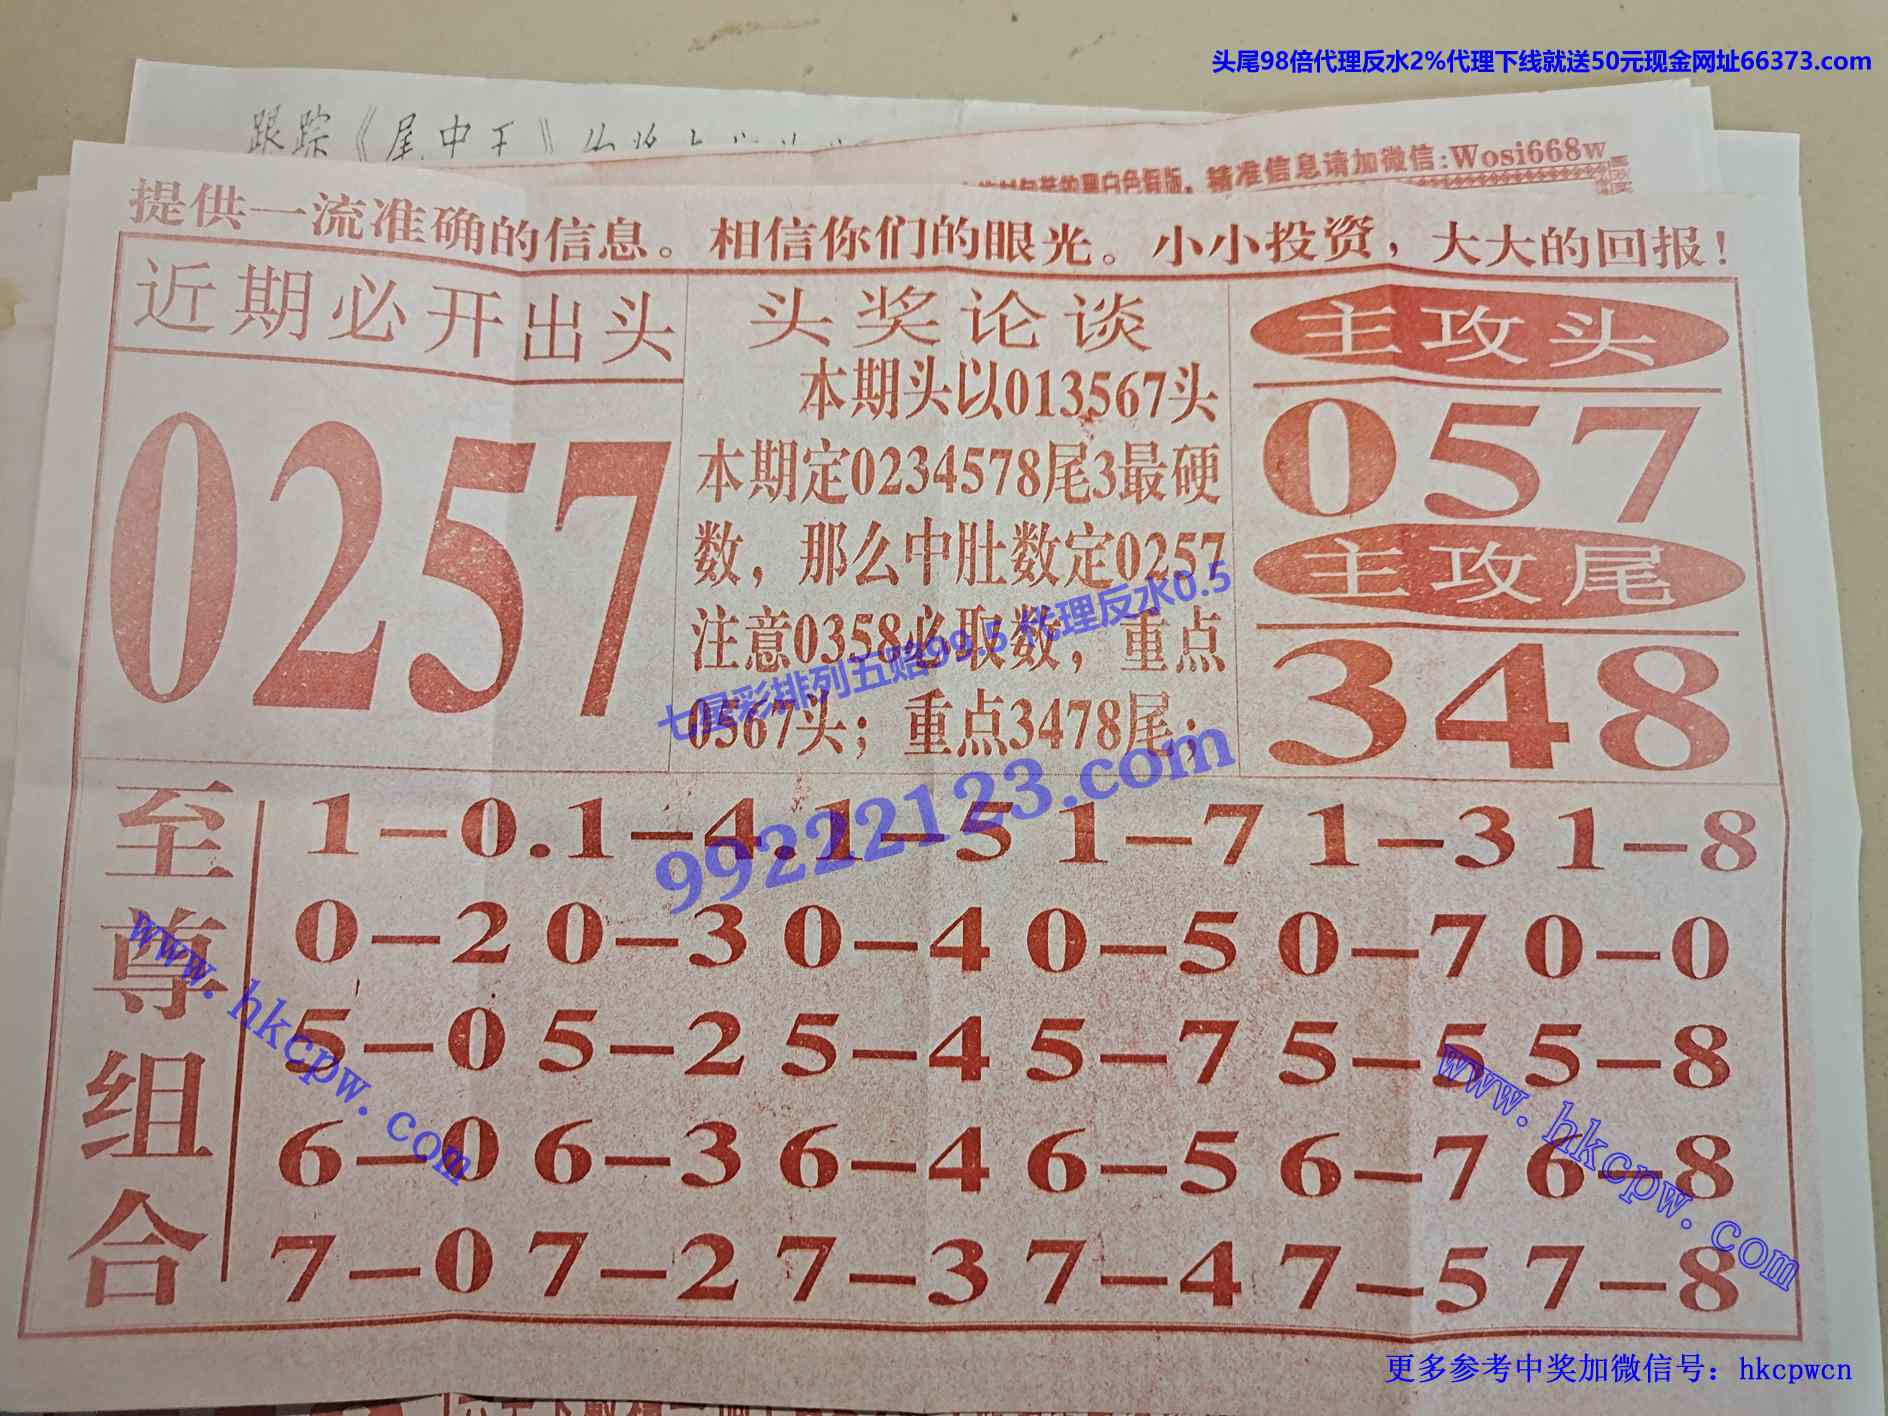 头尾98倍代理反水2%代理下线就送50元现金网址66373.com
跟踪《尾中王》
黑白色假版，精准信息请加微信:Wosi668w
提供一流准确的信息。相信你们的眼光。小小投资，大大的回报！
近期必开出头
0257
头奖论谈
本期头以013567头
本期定0234578尾3最硬
数，那么中肚数定0257
注意0358必取数，重点
0567头；重点3478尾；
主攻头
057
主攻尾
348
七星彩排列五赔99.5 代理反水0.5
99222123.com
至尊组合
1－0.1－4.1－5 1－7 1－3 1－8
0－2 0－3 0－4 0－5 0－7 0－0
5－0 5－2 5－4 5－7 5－5 5－8
6－0 6－3 6－4 6－5 6－7 6－8
7－0 7－2 7－3 7－4 7－5 7－8
www.hkcpw.com
www.hkcpw.com
更多参考中奖加微信号：hkcpwcn